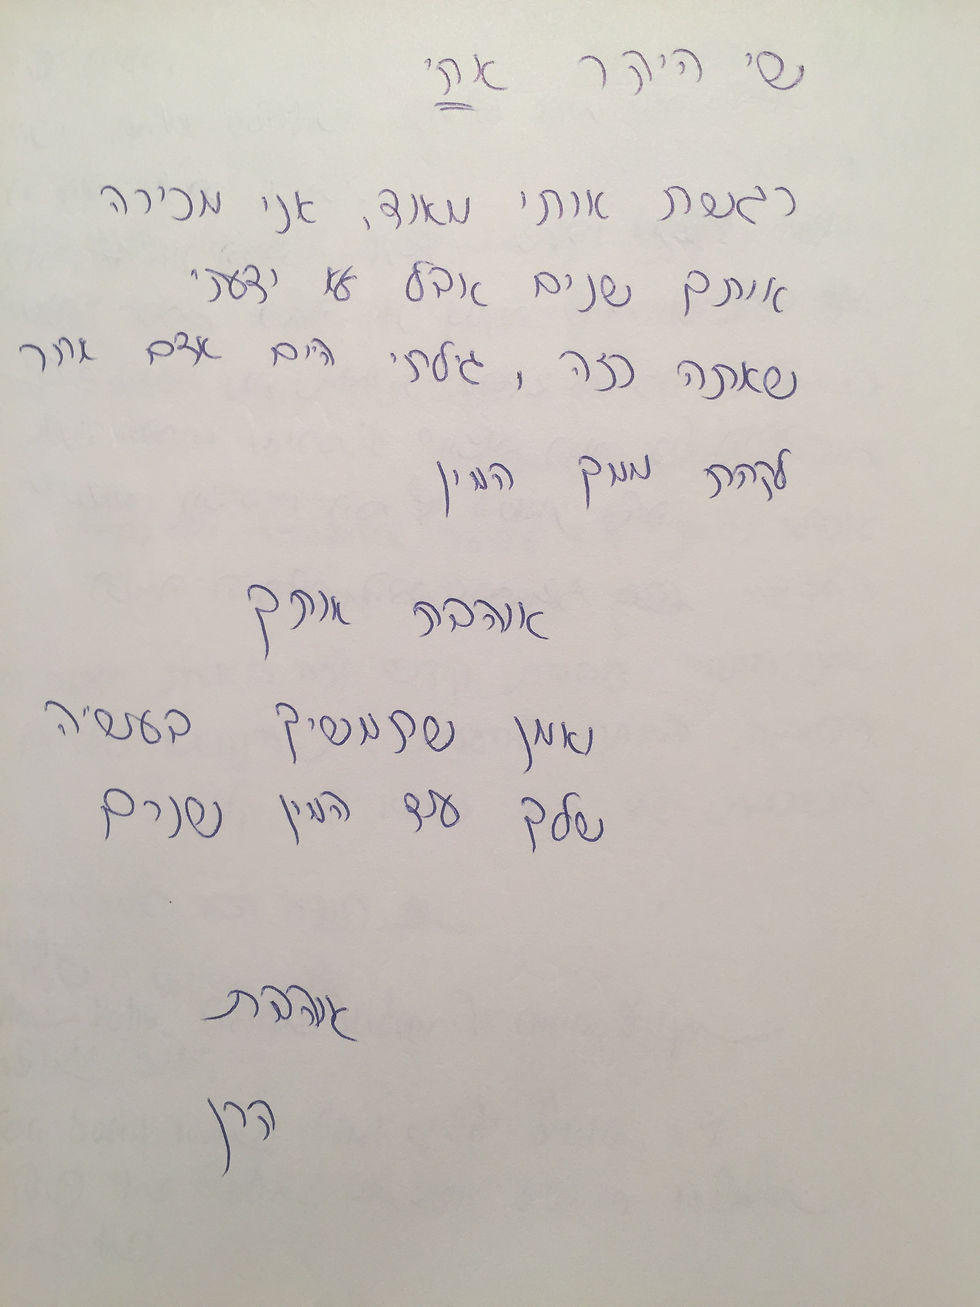 שי היקר אחי
רגשת אותי מאוד, אני מכירה
אותך שנים אבל לא ידעתי
שאתה כזה, גילתי היום אדם אחר
לקחת ממך המון
אוהבת אותך
נאמן שתמשיך בעשיה
שלך עוד המון שנים
אוהבת